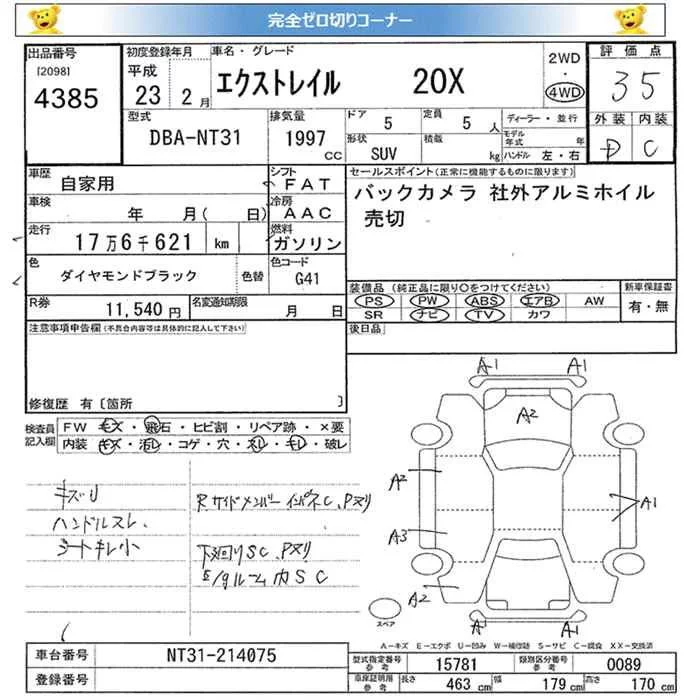 完全ゼロ切りコーナー
出品番号
[2098]
4385
初度登録年月
平成
23年 2月
車名・グレード
エクストレイル 20X
2WD
・
4WD
評価点
35
外装 内装
D C
型式
DBA-NT31
排気量
1997
CC
ドア 5
定員 5 人
形状 SUV
積載 kg
ディーラー・並行
モデル年式 年
ハンドル 左・右
車歴 自家用
シフト FAT
車検 年 月( 日)
冷房 AAC
走行 17万6千621 km
燃料 ガソリン
色 ダイヤモンドブラック
色替
色コード G41
R券 11,540 円
名変通知期限 月 日
セールスポイント(正常に機能するものに限ります)
バックカメラ 社外アルミホイル
売切
装備品 (純正品に限り○をつけてください)
PS PW ABS エアB AW
SR ナビ TV カワ
新車保証書
有・無
後日品
注意事項申告欄(不具合内容等は具体的に記入して下さい)
修復歴 有〔箇所 〕
検査員記入欄
FW キズ・飛石・ヒビ割・リペア跡・×要
内装 キズ・汚レ・コゲ・穴・スレ・キレ・破レ
キズU
ハンドルスレ、
シートキレ小
Rサイドメンバー インパネC、Pヌリ
下廻りSC、Pヌリ
E/gルーム内SC
A1 A1
A2
A2
A1
A3
A2
A1 A1
スペア
A-キズ E-エクボ U-凹み W-補修跡 S-サビ C-腐食 XX-交換済
車台番号 NT31-214075
登録番号
型式指定番号 参考 15781
類別区分番号 参考 0089
車庫証明用 参考 長さ 463 cm 幅 179 cm 高さ 170 cm